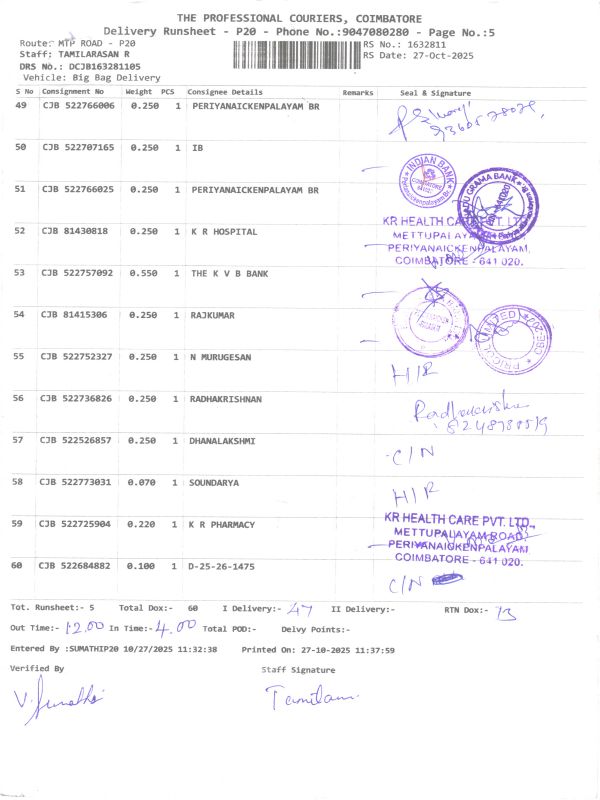 THE PROFESSIONAL COURIERS, COIMBATORE
Delivery Runsheet - P20 - Phone No.:9047080280 - Page No.:5
Route: MTP ROAD - P20
RS No.: 1632811
Staff: TAMILARASAN R
RS Date: 27-Oct-2025
DRS No.: DCJB163281105
Vehicle: Big Bag Delivery
S No Consignment No Weight PCS Consignee Details Remarks Seal & Signature
49 CJB 522766006 0.250 1 PERIYANAICKENPALAYAM BR
50 CJB 522707165 0.250 1 IB
INDIAN BANK
COIMBATORE
51 CJB 522766025 0.250 1 PERIYANAICKENPALAYAM BR
GRAMA BANK
52 CJB 81430818 0.250 1 K R HOSPITAL
KR HEALTH CARE PVT. LTD
METTUPALAYAM
PERIYANAICKENPALAYAM,
COIMBATORE - 641 020.
53 CJB 522757092 0.550 1 THE K V B BANK
54 CJB 81415306 0.250 1 RAJKUMAR
PRICOL LIMITED
55 CJB 522752327 0.250 1 N MURUGESAN
H/R
56 CJB 522736826 0.250 1 RADHAKRISHNAN
57 CJB 522526857 0.250 1 DHANALAKSHMI
C/N
58 CJB 522773031 0.070 1 SOUNDARYA
H/R
59 CJB 522725904 0.220 1 K R PHARMACY
KR HEALTH CARE PVT. LTD.,
METTUPALAYAM ROAD,
PERIYANAICKENPALAYAM,
COIMBATORE - 641 020.
60 CJB 522684882 0.100 1 D-25-26-1475
C/N
Tot. Runsheet:- 5 Total Dox:- 60 I Delivery:- 47 II Delivery:- RTN Dox:- 13
Out Time:- 12.00 In Time:- 4.00 Total POD:- Delvy Points:-
Entered By :SUMATHIP20 10/27/2025 11:32:38 Printed On: 27-10-2025 11:37:59
Verified By Staff Signature
V. Sumathi